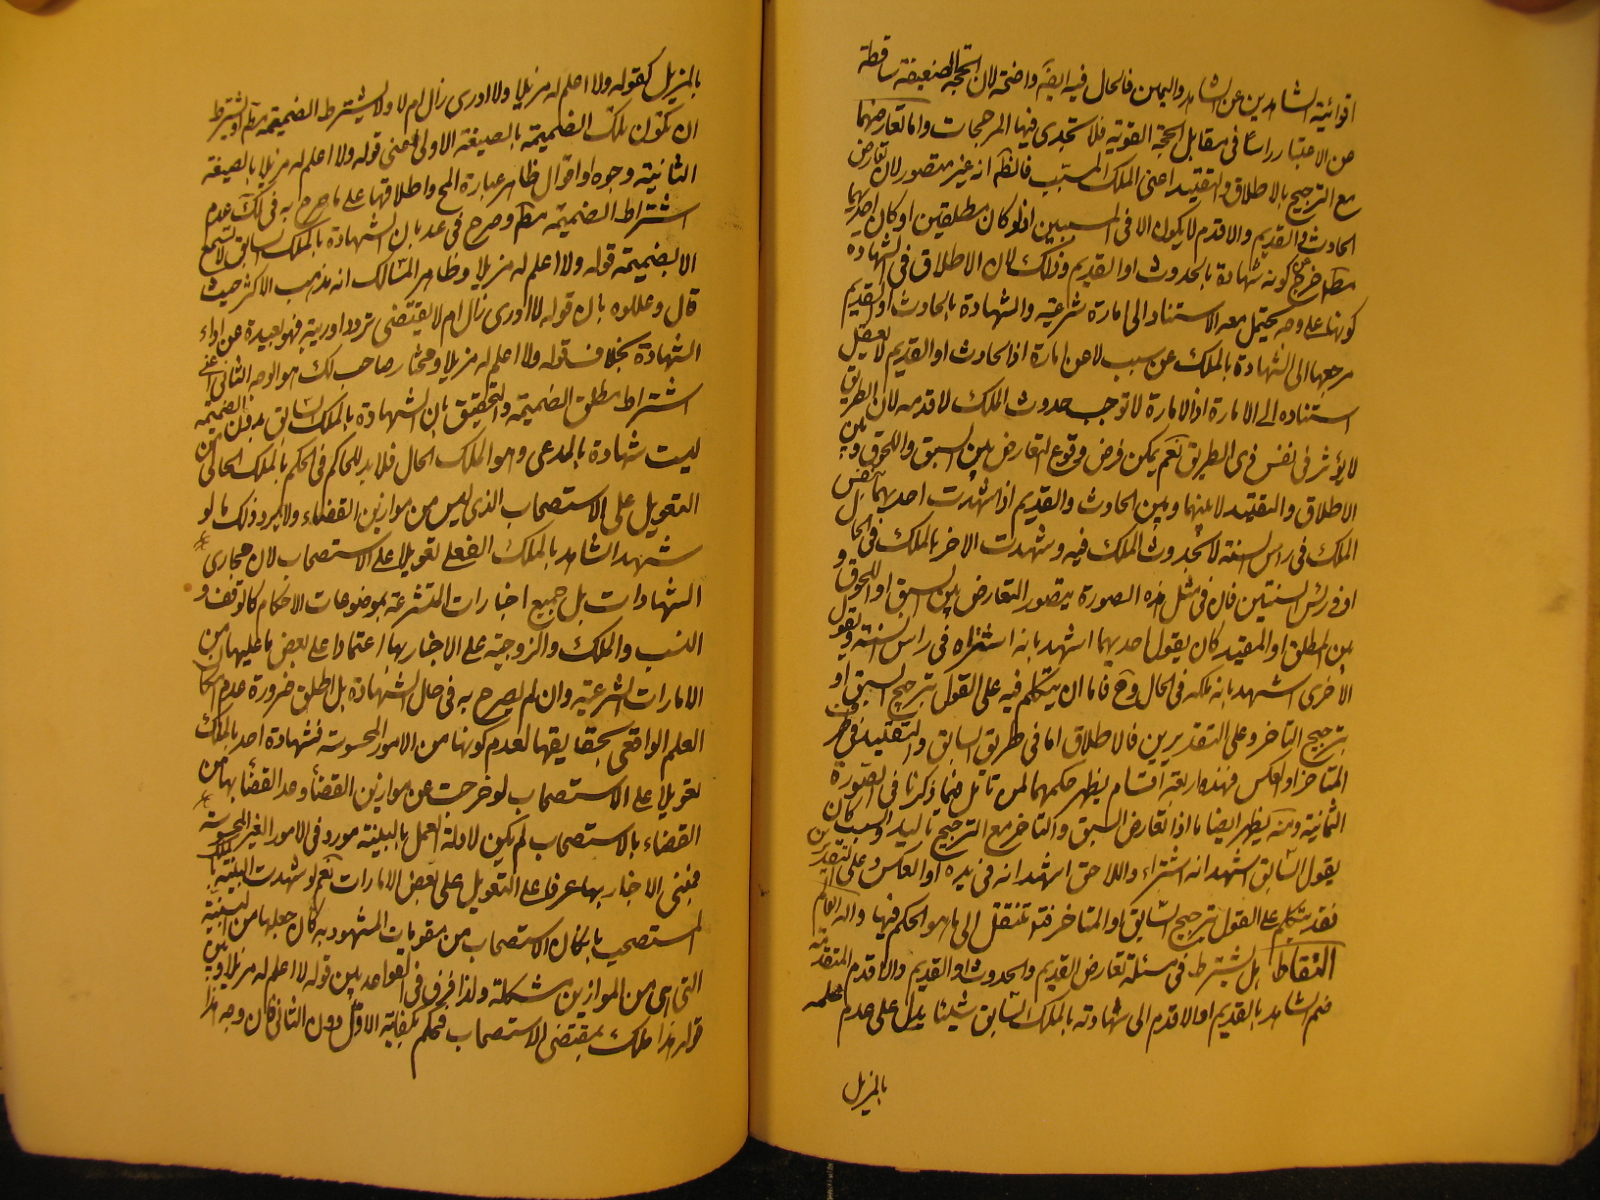 اقوائية الشاهدين عن الشاهد واليمين فالحال فيه ايضا واضحة لان الحجة الضعيفة ساقطة
عن الاعتبار راسا في مقابل الحجة القوية فلا تجدى فيها المرجحات واما تعارضهما
مع الترجيح بالاطلاق والتقييد اعنى الملك المسبب فالظ انه غير متصور لان تعارض
الحادث و القديم والاقدم لا يكون الا فى المسببين اذ لو كان مطلقين او كان احديهما
مطلقا خرج عن كونه شهادة بالحدوث او القديم وذلك لان الاطلاق فى الشهادة
كونها على وجه يحتمل معه الاستناد الى امارة شرعية والشهادة بالحادث او القديم
مرجعها الى الشهادة بالملك عن سبب لا عن امارة اذ الحادث او القديم لا يعقل
استناده الى الامارة اذ الامارة لا توجب حدوث الملك لا قدمه لان الطريق
لا يؤثر فى نفس ذى الطريق نعم يمكن فرض وقوع التعارض بين السبق واللحوق وبين
الاطلاق والتقييد لا بينهما وبين الحادث والقديم اذا شهدت احديهما بنفس
الملك فى راس السنة لا بحدوث الملك فيه وشهدت الاخر بالملك فى الحال
او فى راس السنتين فان فى مثل هذه الصورة يتصور التعارض بين السبق او اللحوق و
بين المطلق او المقيد كان يقول احديهما اشهد بانه اشتراه فى راس السنة ويقول
الاخرى اشهد بانه ملكه فى الحال وح فاما ان يتكلم فيه على القول بترجيح السبق او
بترجيح التاخر وعلى التقديرين فالاطلاق اما فى طريق السابق والتقييد فى طرف
المتاخر او العكس فهذه اربعة اقسام يظهر حكمها لمن تامل فيما ذكرنا فى الصورة
الثمانية ومنه يظهر ايضا ما اذا تعارض السبق والتاخر مع الترجيح باليد والسبب كان
يقول السابق اشهد انه اشتراه واللاحق اشهد انه فى يده او العكس وعلى التقديرين
فقد يتكلم على القول بترجيح السابق او المتاخر فتنتقل الى ما هو الحكم فيها والله العالم
التقاط هل يشترط فى مسئلة تعارض القديم والحدوث او القديم والاقدم المتقدمة
ضم الشاهد بالقديم او الاقدم الى شهادته بالملك السابق شيئا يدل على عدم علمه
بالمزيل
بالمزيل كقوله ولا اعلم له مزيلا ولا ادرى زال ام لا ولا يشترط الضميمة مطلقا او يشترط
ان تكون تلك الضميمة بالصيغة الاولى اعنى قوله ولا اعلم له مزيلا بالصيغة
الثانية وجوه واقوال ظاهر عبارة المح واطلاقها على ما صرح به فى لك عدم
اشتراط الضميمة مطلقا وصرح فى عد بان الشهادة بالملك السابق لا تسمع
الا بضميمة قوله ولا اعلم له مزيلا وظاهر المسالك انه مذهب الاكثر حيث
قال وعللوه بان قوله لا ادرى زال ام لا يقتضى ترددا وريبة فهو بعيدة عن اداء
الشهادة بخلاف قوله ولا اعلم له مزيلا ومختار صاحب لك هو الوجه الثانى اعنى
اشتراط مطلق الضميمة والتحقيق بان الشهادة بالملك السابق بدون الضميمة
ليست شهادة بالمدعى وهو الملك الحال فلا بد للحاكم فى الحكم بالملك الحالى من
التعويل على الاستصحاب الذى ليس من موازين القضاء ولا يرد ذلك ما لو
شهد الشاهد بالملك الفعلى تعويلا على الاستصحاب لان مجارى
الشهادات بل جميع اخبارات المتشرعة بموضوعات الاحكام كالوقف و
النسب والملك والزوجية على الاخبار بها اعتمادا على بعض ما عليها من
الامارات الشرعية وان لم يصرح به فى محل الشهادة بل اطلق ضرورة عدم امكان
العلم الواقعى بحقايقها لعدم كونها من الامور المحسوسة فشهادة احد بالملك
تعويلا على الاستصحاب لو خرجت عن موازين القضاء وعد القضاء بها من
القضاء بالاستصحاب لم يكن لادلة العمل بالبينة مورد فى الامور الغير المحسوسة
فمبنى الاخبار بها عرفا على التعويل على بعض الامارات نعم لو شهدت البينة بالملك
المستصحب بان كان الاستصحاب من مقومات المشهود به كان جعلها من البينة
التى هى من الموازين مشكلة ولذا فرق فى القواعد بين قوله لا اعلم له مزيلا وبين
قوله هذا ملكه بمقتضى الاستصحاب فحكم بكفاية الاول دون الثانى كان وجه هذا